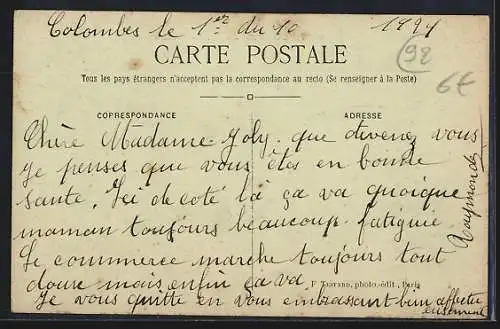 Colombes le 1er du 10 1921
92
CARTE POSTALE
6€
Tous les pays étrangers n'acceptent pas la correspondance au recto (Se renseigner à la Poste)
CORRESPONDANCE
ADRESSE
Chère Madame Joly. que divenez vous
Je penses que vous êtes en bonne
santé. Ici de coté là ça va quoique
maman toujours beaucoup fatiguée
Le commerce marche toujours tout
douse mais enfin ça va
photo.-édit., Paris
Je vous quitte en vous embrassant bien affectueusement
Raymonde